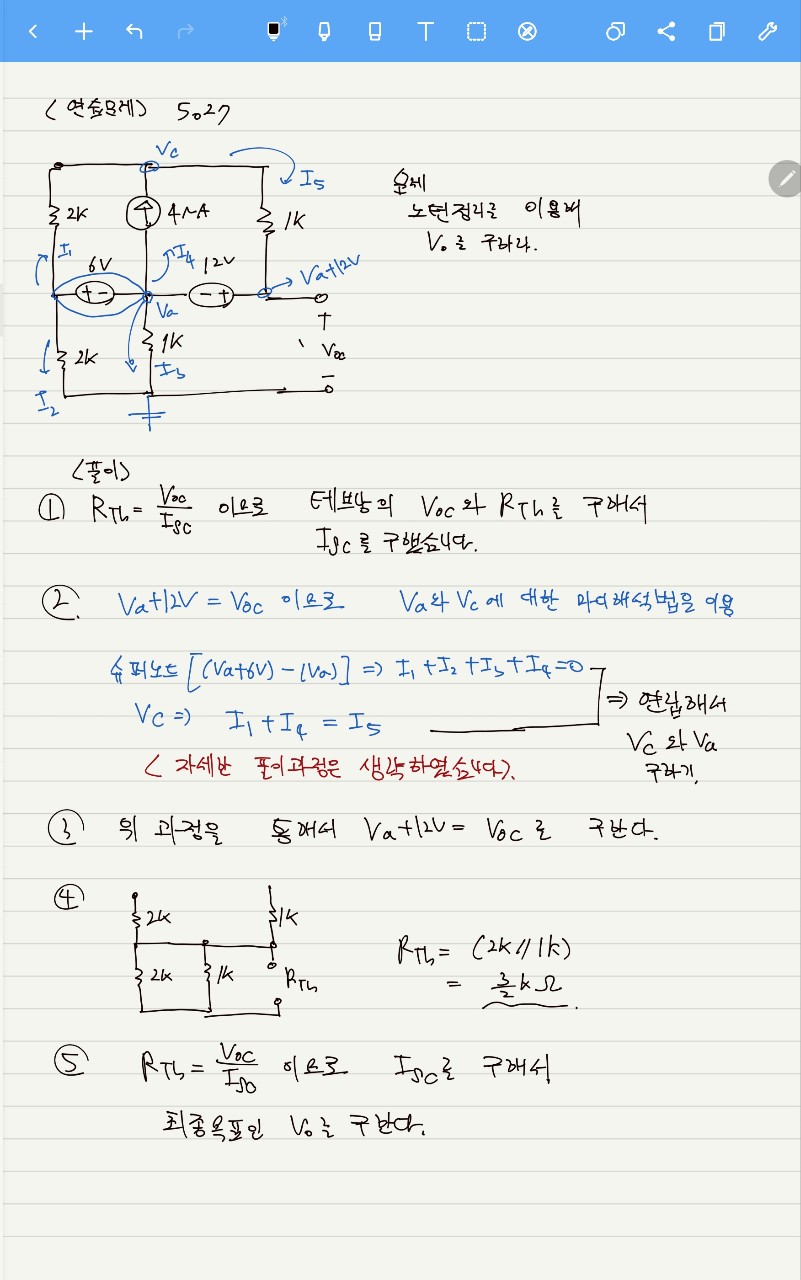 <연습문제> 5.27
Vc
I5
2K
4mA
1K
문제
노턴정리를 이용해
Vo를 구하라.
I1
6V
I4
12V
Va+12V
+ -
- +
Va
+
2K
1K
Voc
I2
I3
-
<풀이>
① RTh = Voc/Isc 이므로 테브낭의 Voc와 RTh를 구해서
Isc를 구했습니다.
② Va+12V = Voc 이므로 Va와 Vc에 대한 마디해석법을 이용
슈퍼노드 [(Va+6V) - (Va)] => I1 + I2 + I3 + I4 = 0
Vc => I1 + I4 = I5
=> 연립해서
Vc와 Va
구하기.
< 자세한 풀이과정은 생략하였습니다>.
③ 위 과정을 통해서 Va+12V = Voc를 구한다.
④
2K
1K
2K
1K
RTh
RTh = (2k//1k)
= 3/2 k Ω
⑤ RTh = Voc/Iso 이므로 Isc를 구해서
최종목표인 Vo를 구한다.